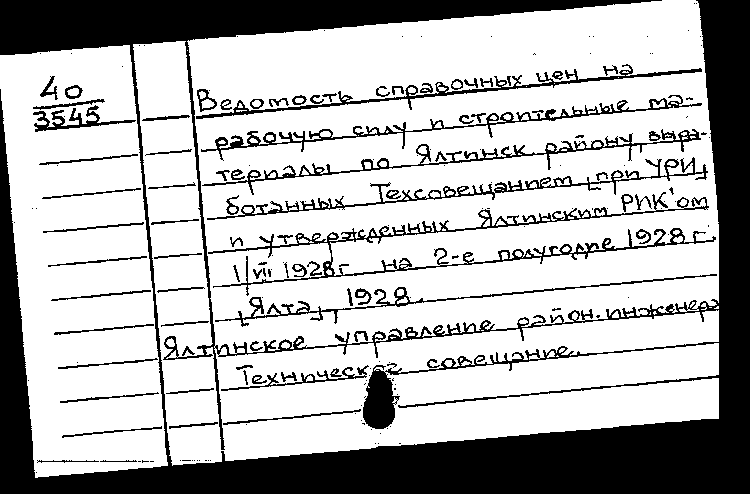 40
3545
Ведомость справочных цен на
рабочую силу и строительные ма-
териалы по Ялтинск району, выра-
ботанных Техсовещанием [при УРИ]
и утвержденных Ялтинским РИК'ом
1/VII 1928г на 2-е полугодие 1928 г.
[Ялта], 1928.
Ялтинское управление район. инженера
Техническое совещание.